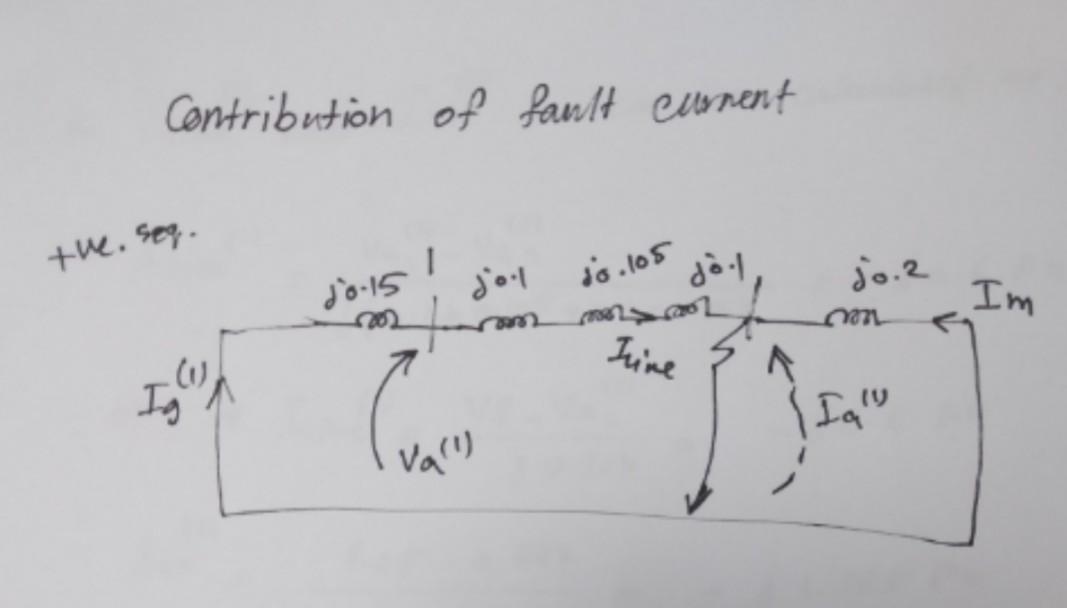 Contribution of fault current
+ve. seq.
j0.15 1 j0.1 j0.105 j0.1 j0.2 Im
Iline
Ig(1) Va(1) Ia(1)